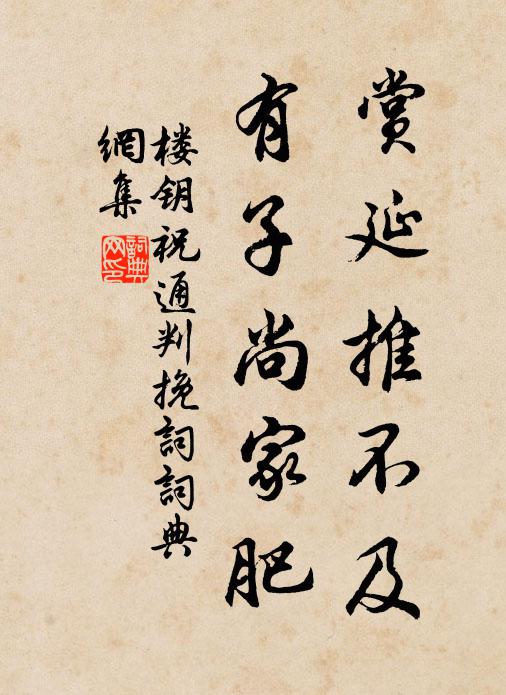 赏延推不及
有子尚家肥
楼钥祝通判挽詞詞典
網集
詞典网印